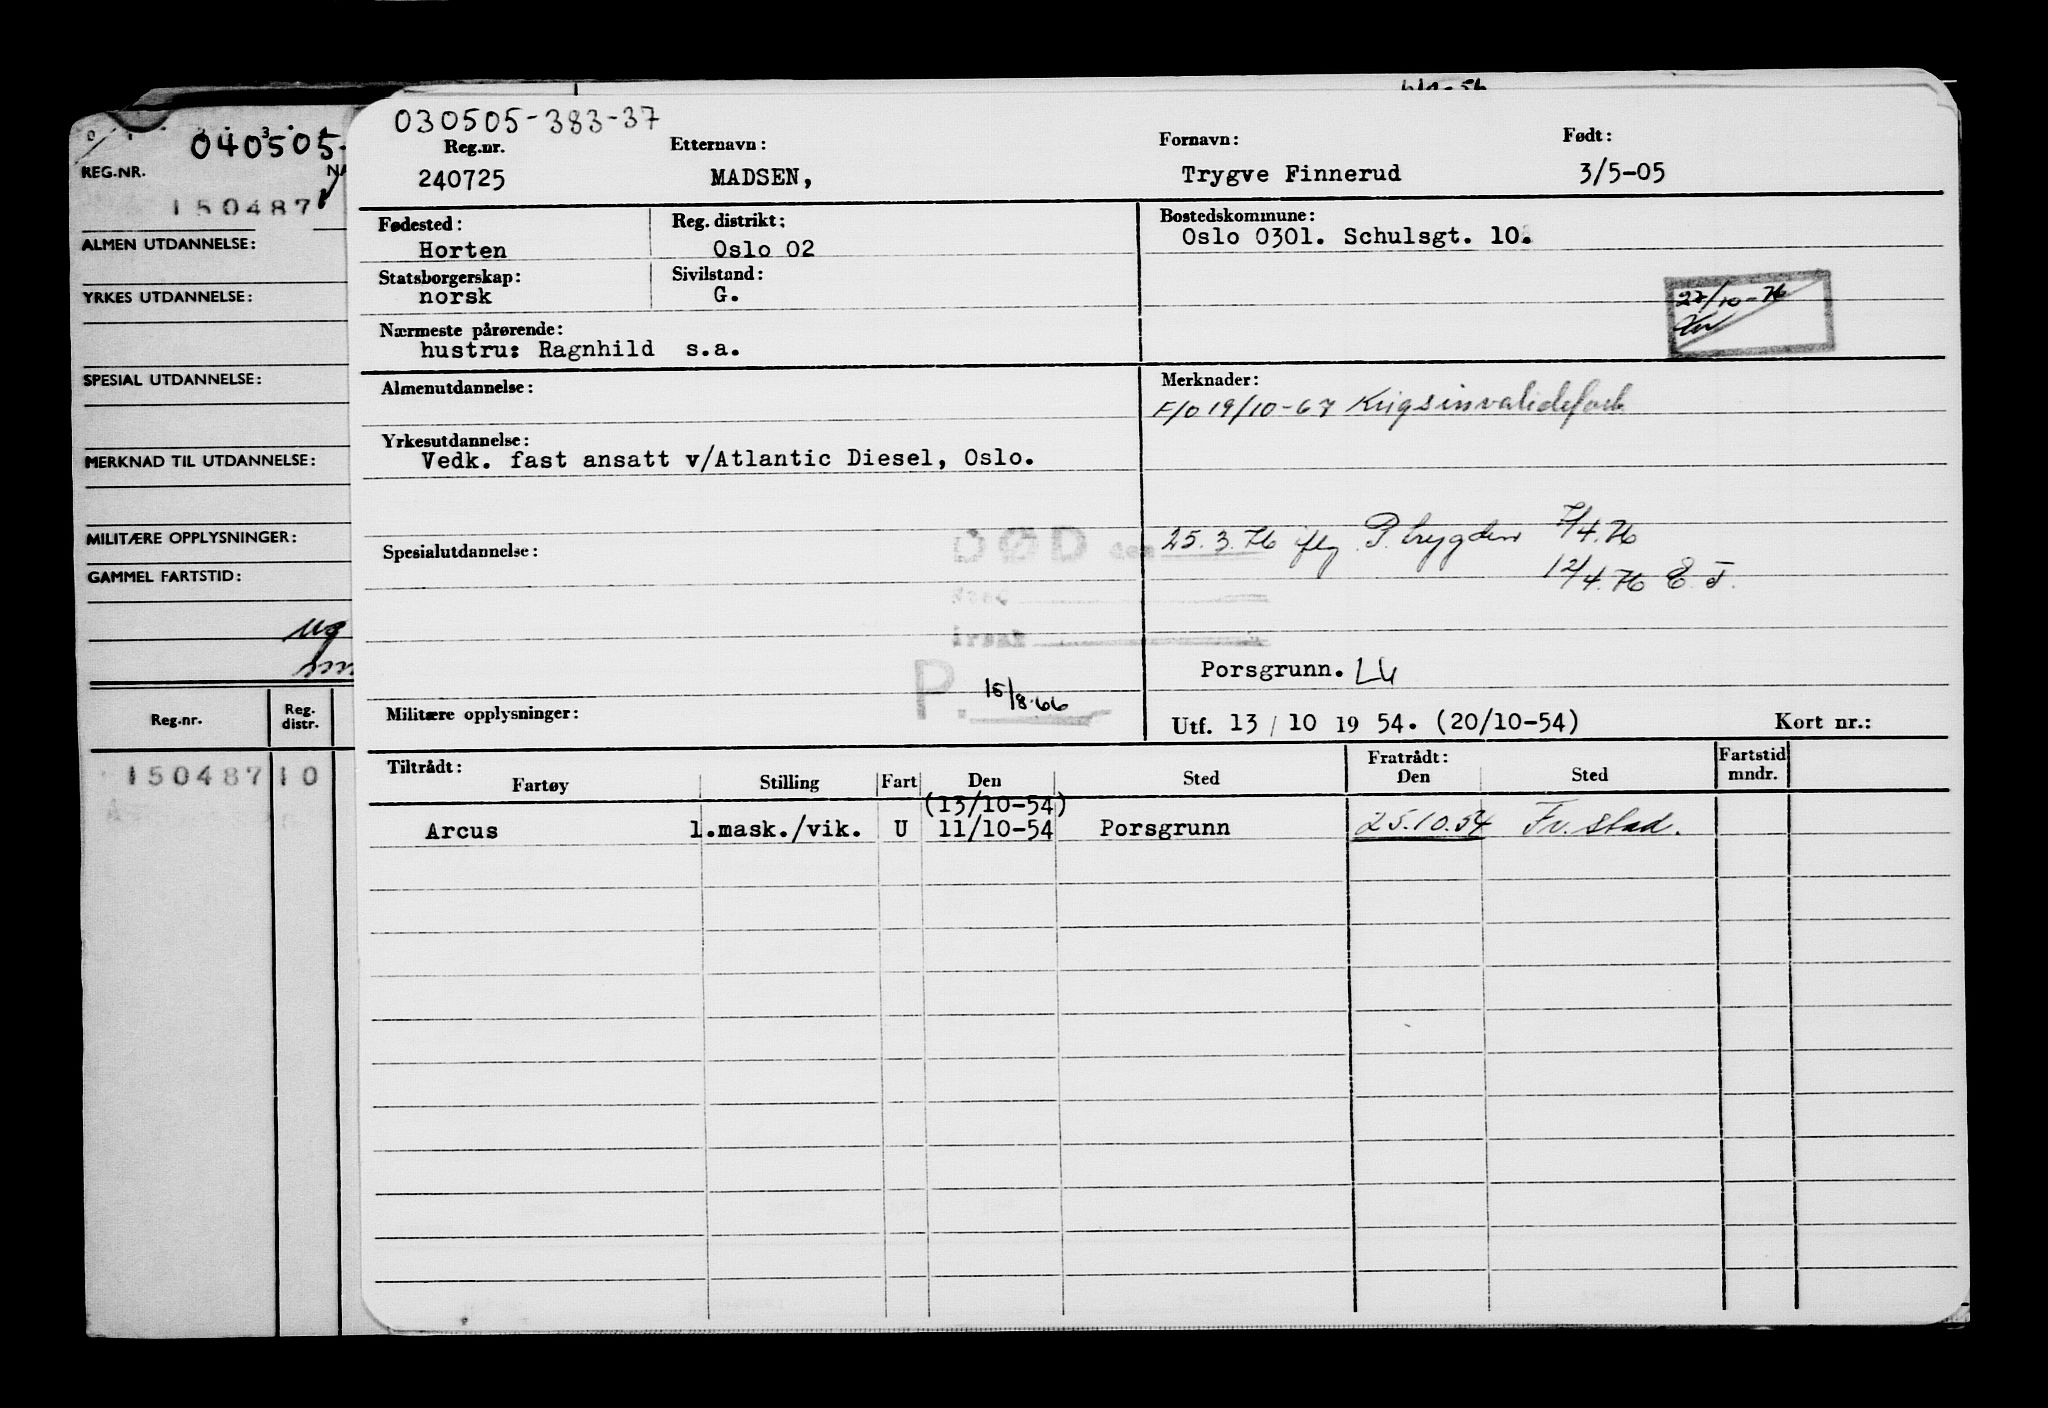 040505-
REG.NR.
150487
ALMEN UTDANNELSE:
YRKES UTDANNELSE:
SPESIAL UTDANNELSE:
MERKNAD TIL UTDANNELSE:
MILITÆRE OPPLYSNINGER:
GAMMEL FARTSTID:
Reg.nr. Reg. distr.
150487 10
030505-383-37
Reg.nr. Etternavn: Fornavn: Født:
240725 MADSEN, Trygve Finnerud 3/5-05
Fødested: Reg. distrikt: Bostedskommune:
Horten Oslo 02 Oslo 0301. Schulsgt. 10.
Statsborgerskap: Sivilstand:
norsk G.
27/10-76
Nærmeste pårørende:
hustru: Ragnhild s.a.
Almenutdannelse: Merknader:
F/O 19/10-67 Krigsinvalideforb
Yrkesutdannelse:
Vedk. fast ansatt v/Atlantic Diesel, Oslo.
Spesialutdannelse:
DØD den 25.3.76 iflg P.trygden 7/4.76
12/4.76 E.J.
årsak
Porsgrunn. LU
P. 15/8.66
Militære opplysninger:
Utf. 13 / 10 19 54. (20/10-54) Kort nr.:
Tiltrådt: Fratrådt: Fartstid
Fartøy Stilling Fart Den Sted Den Sted mndr.
(13/10-54)
Arcus 1.mask./vik. U 11/10-54 Porsgrunn 25.10.54 Fr.stad.